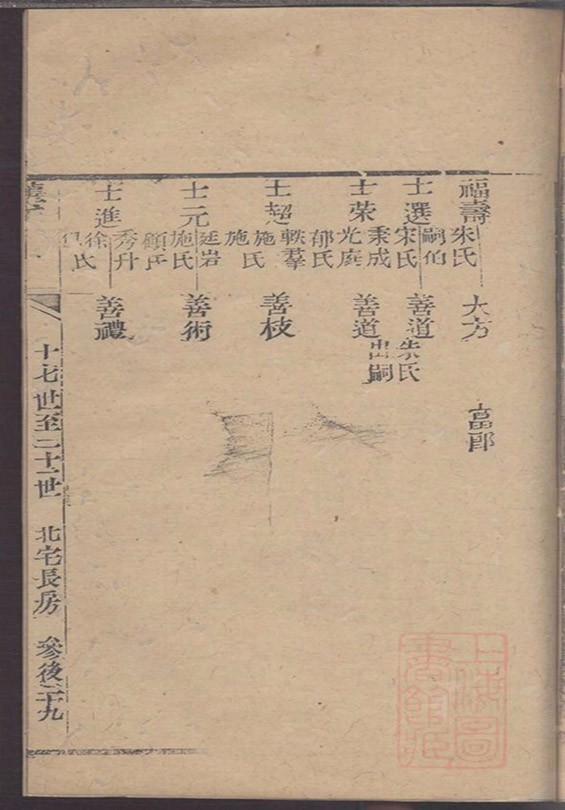 福壽 朱氏 大方 富郎
士選 嗣伯 宋氏 善道 朱氏
士榮 秉成 光庭 郁氏 善道 出嗣
士超 軼羣 施氏 施氏 善枝
士元 廷岩 施氏 顧氏 善術
士進 秀升 徐氏 善禮
十七世至二十一世 北宅長房 參後 三十九
上海圖書館藏